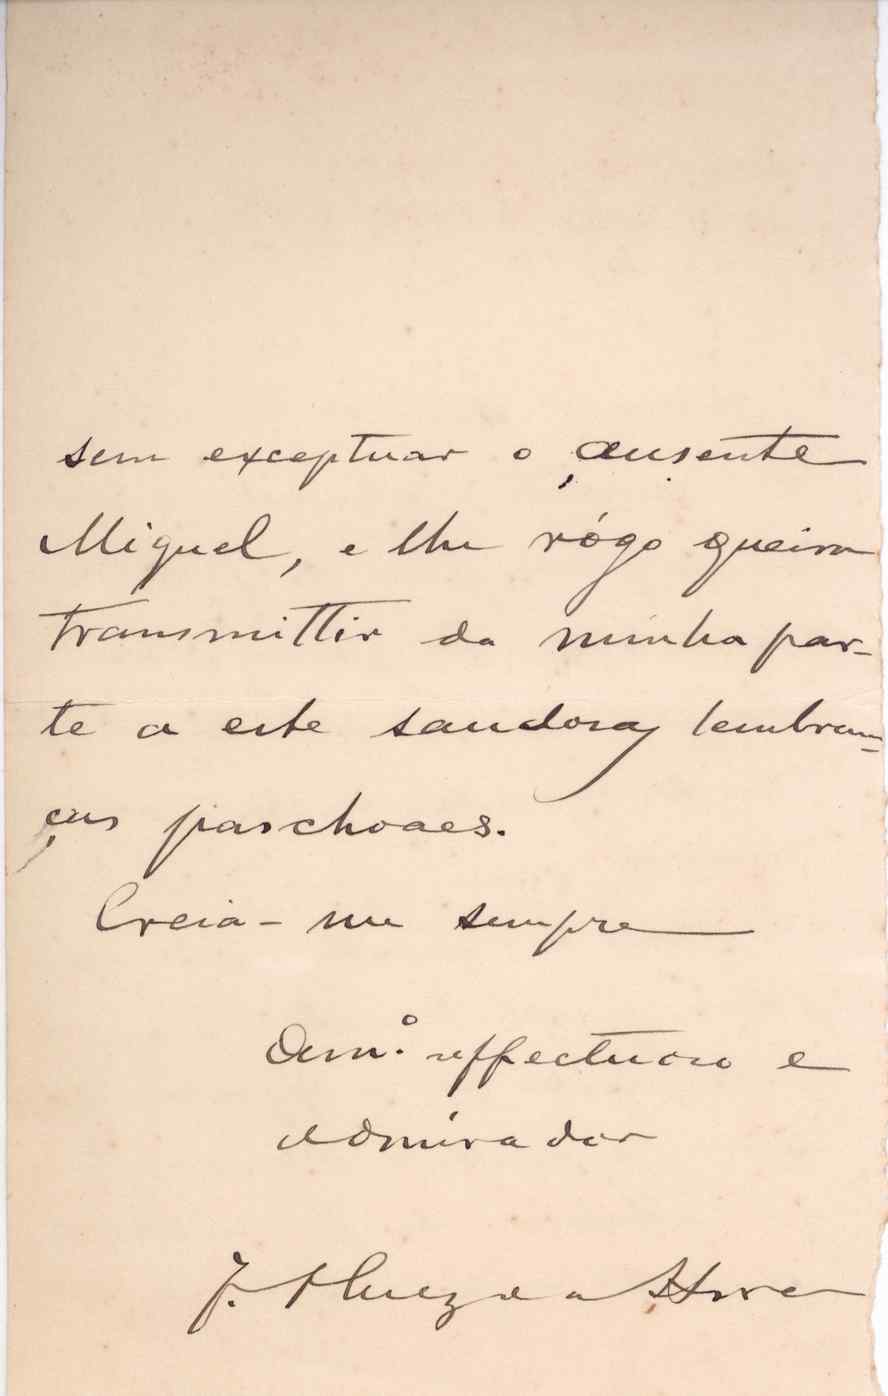 sem exceptuar o ausente
Miguel, e lhe rógo queira
transmittir da minha par-
te a este saudosas lembran-
ças paschoaes.
Creia-me sempre
Amº. affectuoso e
admirador
J.